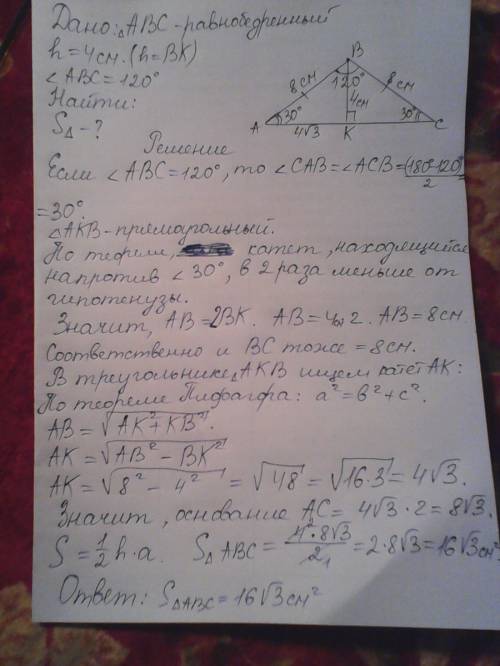 Дано: △ABC - равнобедренный
h = 4см. (h = BK)
∠ABC = 120°
Найти:
S△ - ?
B
8см
120°
8см
4см
A
30°
4√3
K
30°
C
Решение
Если ∠ABC = 120°, то ∠CAB = ∠ACB = (180°-120°)/2
= 30°.
△AKB - прямоугольный.
По теореме, катет, находящийся
напротив ∠30°, в 2 раза меньше от
гипотенузы.
Значит, AB = 2BK. AB = 4см·2. AB = 8см.
Соответственно и BC тоже = 8см.
В треугольнике △AKB ищем катет AK:
По теореме Пифагфра: a² = b² + c².
AB = √AK² + KB².
AK = √AB² - BK²
AK = √8² - 4² = √48 = √16·3 = 4√3.
Значит, основание AC = 4√3 · 2 = 8√3.
S = 1/2 h·a. S△ABC = 4²·8√3/2₁ = 2·8√3 = 16√3 см²
Ответ: S△ABC = 16√3 см²